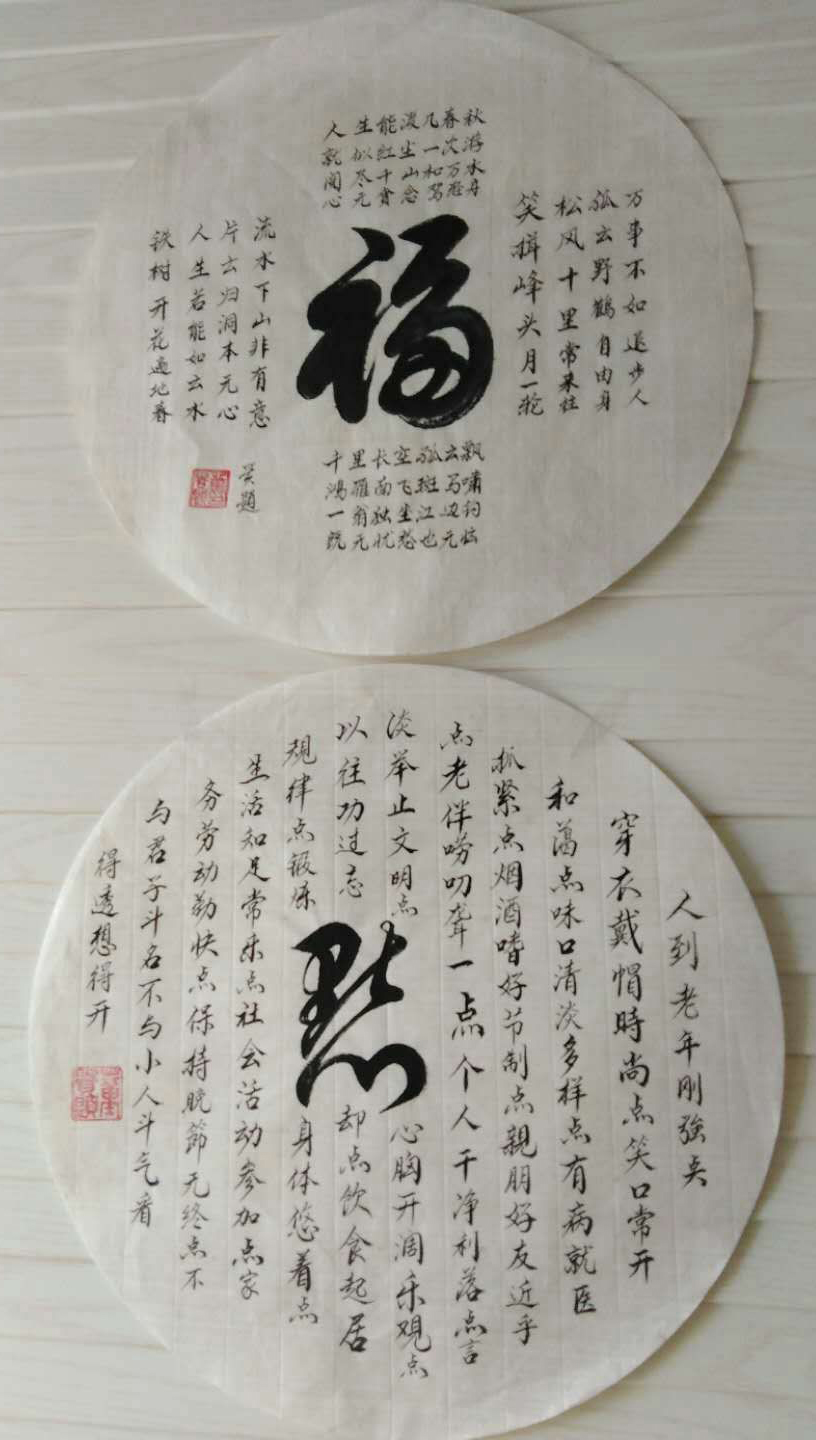 万事不如退步人
孤云野鹤自由身
松风十里常来往
笑揖峰头月一轮
秋游水舟
春次万愁
几一和驾
渡尘山念
能红十贪
生似尽元
人就闻心
福
飘啸钓
云写边元
孤斑江也
空飞坐愁
长面独忧
里雁翁元
千鸿一
流水下山非有意
片云归洞本无心
人生若能如云水
铁树开花遍地春
题
人到老年刚强点
穿衣戴帽時尚点笑口常开
和蔼点味口清淡多样点有病就医
抓紧点烟酒嗜好节制点親朋好友近乎
点老伴唠叨聋一点个人干净利落点言
淡举止文明点心胸开阔乐观点
以往功过忘却点饮食起居
规律点锻炼身体悠着点
愁
生活知足常乐点社会活动参加点家
务劳动勤快点保持晚節无终点不
与君子斗名不与小人斗气看
得透想得开